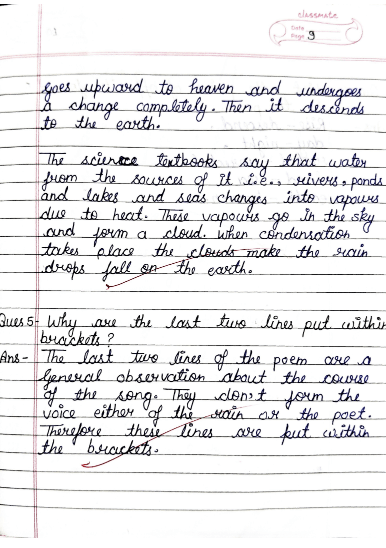 classmate
Date
Page 9
goes upward to heaven and undergoes
a change completely. Then it descends
to the earth.
The science textbooks say that water
from the sources of it i.e., rivers, ponds
and lakes and seas changes into vapours
due to heat. These vapours go in the sky
and form a cloud. When condensation
takes place the clouds make the rain
drops fall on the earth.
Ques 5- Why are the last two lines put within
brackets?
Ans- The last two lines of the poem are a
General observation about the course
of the song. They don't form the
voice either of the rain or the poet.
Therefore these lines are put within
the brackets.